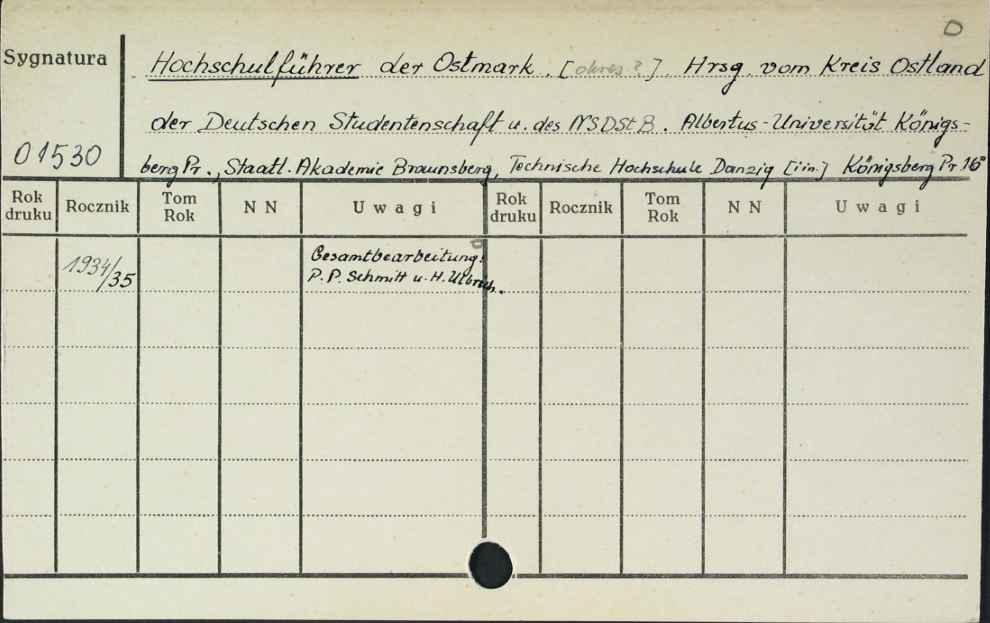 O
Sygnatura
Hochschulführer der Ostmark. [okres?]. Hrsg. vom Kreis Ostland
der Deutschen Studentenschaft u. des NSDStB. Albertus-Universität Königs-
01530
berg Pr., Staatl. Akademie Braunsberg, Technische Hochschule Danzig [i in.] Königsberg Pr. 16°
Rok druku Rocznik Tom Rok NN Uwagi Rok druku Rocznik Tom Rok NN Uwagi
1934/35 Gesamtbearbeitung:
P. P. Schmitt u. H. Ulbrich.